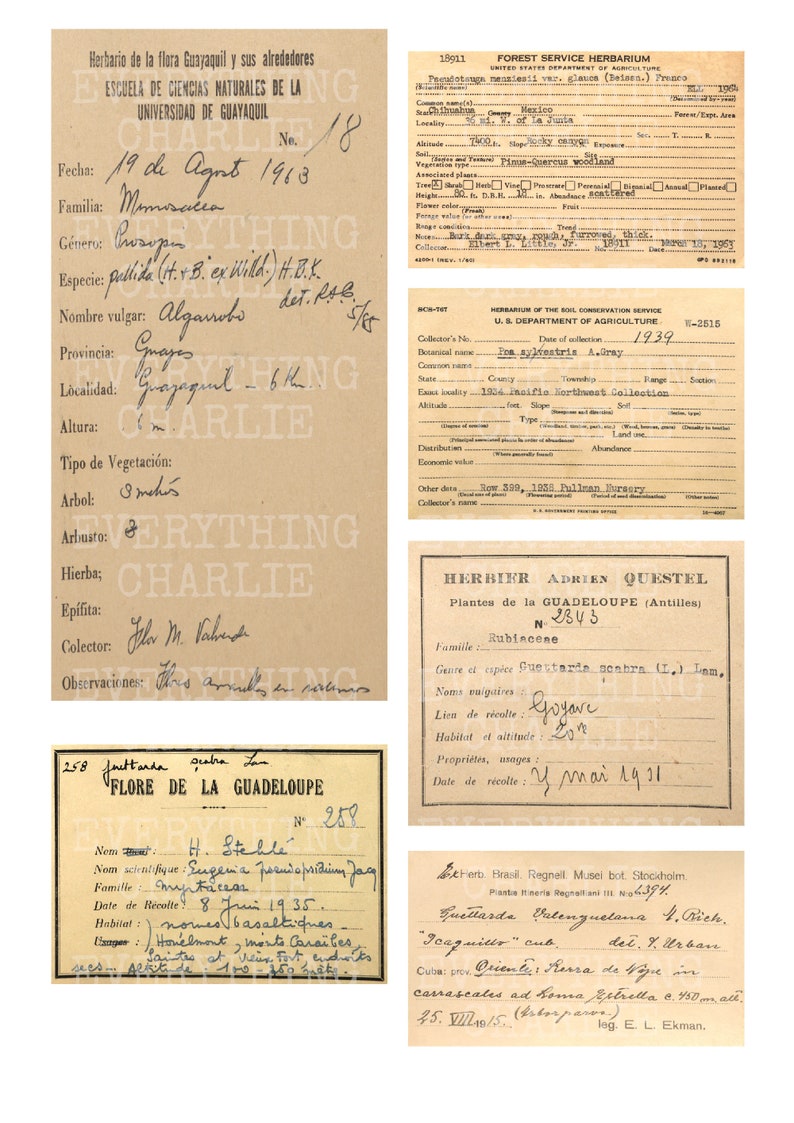 Herbario de la flora Guayaquil y sus alrededores
ESCUELA DE CIENCIAS NATURALES DE LA
UNIVERSIDAD DE GUAYAQUIL
No. 18
Fecha: 19 de Agost 1963
Familia: Mimosacea
Género: Prosopis
Especie: pallida (H. & B. ex Willd.) H.B.K.
det.
5/85
Nombre vulgar: Algarrobo
Provincia: Guayas
Localidad: Guayaquil - 6 Km.
Altura: 6 m.
Tipo de Vegetación:
Arbol: 3 metros
Arbusto:
Hierba;
Epífita:
Colector: Flor M. Valverde
Observaciones: Flores amarillas en racimos
EVERYTHING
CHARLIE
EVERYTHING
CHARLIE
EVERYTHING
CHARLIE
EVERYTHING
CHARLIE
258 Guettarda scabra Lam
FLORE DE LA GUADELOUPE
N° 258
Nom : H. Stehlé
Nom scientifique : Eugenia pseudopsidium Jacq
Famille : Myrtaceae
Date de Récolte : 8 Juin 1935.
Habitat : ) mornes basaltiques -
Usages : ) Houëlmont, monts Caraïbes,
Saintes et Vieux Fort endroits
secs - Altitude 100 - 350 mèt.
18911 FOREST SERVICE HERBARIUM
UNITED STATES DEPARTMENT OF AGRICULTURE
Pseudotsuga menziesii var. glauca (Beissn.) Franco
(Scientific name) ELL 1964
Common name(s) (Determined by - year)
State Chihuahua County Mexico Forest/Expt. Area
Locality 36 mi. W. of La Junta
Sec. T. R.
Altitude 7400 ft. Slope Rocky canyon Exposure
Soil Site
(Series and Texture)
Vegetation type Pinus-Quercus woodland
Associated plants
Tree X Shrub Herb Vine Prostrate Perennial Biennial Annual Planted
Height 80 ft. D.B.H. 18 in. Abundance scattered
Flower color Fruit
(Fresh)
Forage value (or other uses)
Range condition Trend
Notes Bark dark gray, rough, furrowed, thick.
Collector Elbert L. Little, Jr. No. 18911 Date March 18, 1963
4200-1 (REV. 1/60) GPO 892116
SCS-76T HERBARIUM OF THE SOIL CONSERVATION SERVICE
U. S. DEPARTMENT OF AGRICULTURE W-2515
Collector's No. Date of collection 1939
Botanical name Poa sylvestris A.Gray
Common name
State County Township Range Section
Exact locality 1934 Pacific Northwest Collection
Altitude feet. Slope Soil
(Steepness and direction) (Series, type)
Type
(Degree of erosion) (Woodland, timber, park, etc.) (Weed, browse, grass) (Density in tenths)
Land use
(Principal associated plants in order of abundance)
Distribution Abundance
(Where generally found)
Economic value
Other data Row 399, 1938 Pullman Nursery
(Usual size of plant) (Flowering period) (Period of seed dissemination) (Other notes)
Collector's name
U. S. GOVERNMENT PRINTING OFFICE 16—4067
HERBIER ADRIEN QUESTEL
Plantes de la GUADELOUPE (Antilles)
N° 2343
Famille : Rubiaceae
Genre et espèce Guettarda scabra (L.) Lam.
Noms vulgaires :
Lieu de récolte : Goyave
Habitat et altitude : 20 m
Propriétés, usages :
Date de récolte : mai 1931
Ex Herb. Brasil. Regnell. Musei bot. Stockholm.
Plantæ Itineris Regnelliani III. N:o 6394.
Guettarda Valenzuelana A. Rich.
"Icaquillo" cub. det. I. Urban
Cuba: prov. Oriente: Sierra de Nipe in
carrascales ad Loma Estrella c. 450 m. alt.
25. VIII 1915. (Arbor parva.)
leg. E. L. Ekman.